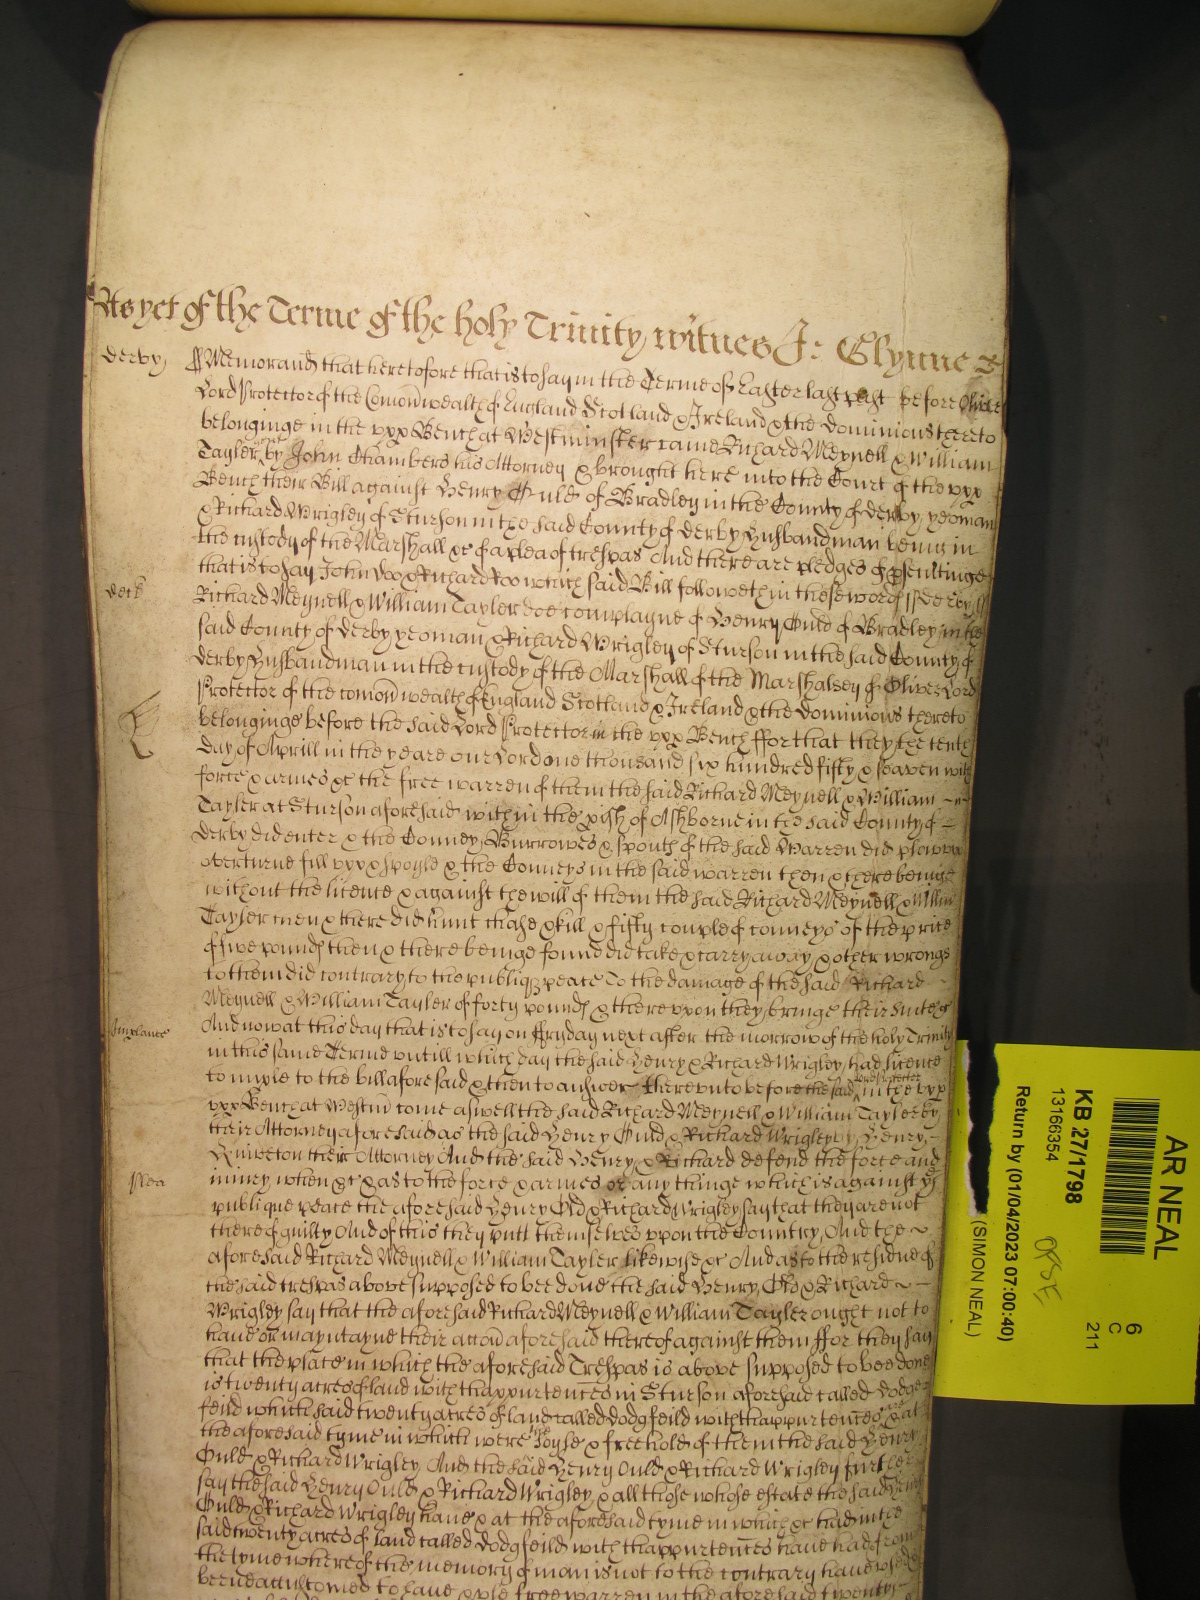 As yet of the Terme of the holy Trinity witnes J: Glynne
derby
Memorand that heretofore that is to say in the Terme of Easter last past before Oliver
Lord Protector of the Comonwealth of England Scotland & Ireland & the dominions thereto
belonginge in the upp Bench at Westminster came Richard Meynell & William
Tayler by John Chambers his Attorney & brought here into the Court of the upp
Bench their Bill against Henry Ould of Bradley in the County of derby yeoman
& Richard Wrigley of Sturson in the said County of derby husbandman being in
the custody of the Marshall &c of a plea of trespas And there are pledges of psecutinge
that is to say John doo & Richard Roo which said Bill followeth in these words ss derby ss
Richard Meynell & William Tayler doe complayne of Henry Ould of Bradley in the
said County of derby yeoman & Richard Wrigley of Sturson in the said County of
derby husbandman in the custody of the Marshall of the Marshalsey of Oliver Lord
Protector of the comon wealth of England Scotland & Ireland & the dominions thereto
belonginge before the said Lord Protector in the upp Bench ffor that they the tenth
day of Aprill in the yeare our Lord one thousand six hundred fifty & seaven with
force & armes &c the free warren of them the said Richard Meynell & William
Tayler at Sturson aforesaid within the pish of Ashborne in the said County of
derby did enter & the Conney Burrowes & of the said Warren did plowe
overturne fill upp & spoyle & the Conneys in the said warren then & there beinge
without the licence & against the will of them the said Richard Meynell & Willm
Tayler then & there did hunt chase & kill & fifty couple of conneys of the price
of five pounds then & there beinge found did take & carry away & other wrongs
to them did contrary to the publiq peace To the damage of the said Richard
Meynell & William Tayler of forty pounds & thereupon they bringe their suite &
Implance
And now at this day that is to say on ffryday next after the morrow of the holy Trinity
in this same Terme untill which day the said Henry & Richard Wrigley had licence
to imple to the bill aforesaid & then to answer thereunto before the said Lord Protector in the upp
upp Bench at Westm come aswell the said Richard Meynell & William Tayler by
their Attorney aforesaid as the said Henry Ould & Richard Wrigley by Henry
their Attorney And the said Henry & Richard defend the force and
Plea
injury when &c & as to the force & armes or any thinge which is against ye
publique peace the aforesaid Henry Old & Richard Wrigley say that they are not
thereof guilty And of this they putt themselves upon the Country And the
aforesaid Richard Meynell & William Tayler likewise &c And as to the residue of
the said trespas above supposed to bee done the said Henry Old & Richard
Wrigley say that the aforesaid Richard Meynell & William Tayler ought not to
have or mayntayne their accon aforesaid thereof against them ffor they say
that the place in which the aforesaid Trespas is above supposed to bee done
is twenty acres of land with thappurtences in Sturson aforesaid called dodge
feild which said twenty acres of land called dodgfeild with thappurtences are & at
the aforesaid tyme in which were the soyle & freehold of them the said Henry
Ould & Richard Wrigley And the said Henry Ould & Richard Wrigley further
say the said Henry Ould & Richard Wrigley & all those whose estate the said Henry
Ould & Richard Wrigley have & at the aforesaid tyme in which &c had in the
said twenty acres of land called dodgfeild with thappurtences have had from
the tyme whereof the memory of man is not to the contrary have used
beene accustomed to have & use free warren in the aforesaid twenty
AR NEAL
6
C
211
KB 27/1798
13166354
Return by (01/04/2023 07:00:40)
(SIMON NEAL)